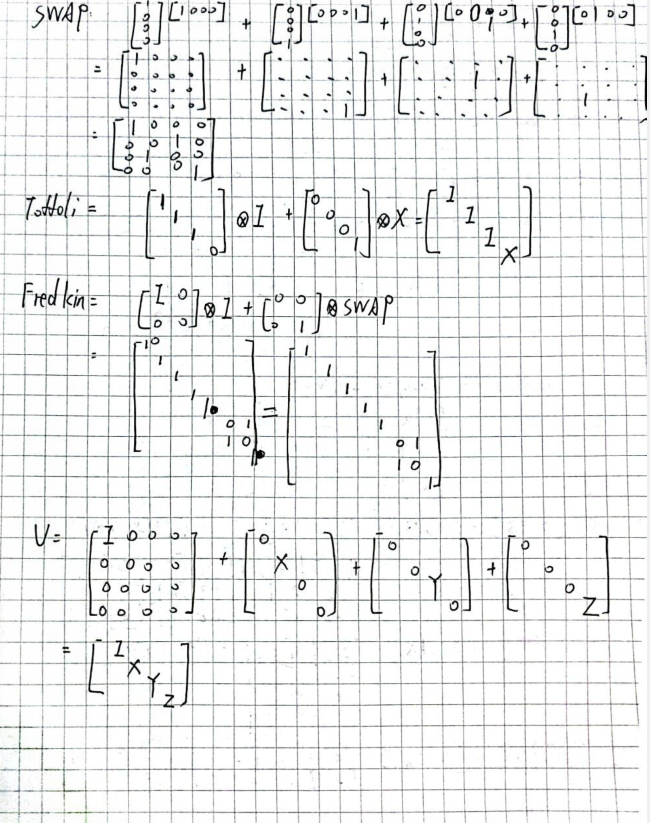 SWAP: [1 0 0 0] [1 0 0 0] + [0 0 0 1] [0 0 0 1] + [0 1 0 0] [0 0 1 0] + [0 0 1 0] [0 1 0 0]
= [1 0 0 0 · · · · 0 · · · ·] + [· · · · 1] + [· · · 1 ·] + [· · · 1 ·]
= [1 0 0 0
0 0 1 0
0 1 0 0
0 0 0 1]
Toffoli = [1 1 1 0] ⊗ I + [0 0 0 1] ⊗ X = [I I I X]
Fredkin = [I 0 0 0] ⊗ I + [0 0 0 1] ⊗ SWAP
= [1 0 1 1 1 1 0 1 1 0 1] = [1 1 1 1 1 0 1 1 0 1]
V = [I 0 0 0 0 0 0 0 0 0 0 0 0 0 0 0] + [0 X 0 0] + [0 0 Y 0] + [0 0 0 Z]
= [I X Y Z]